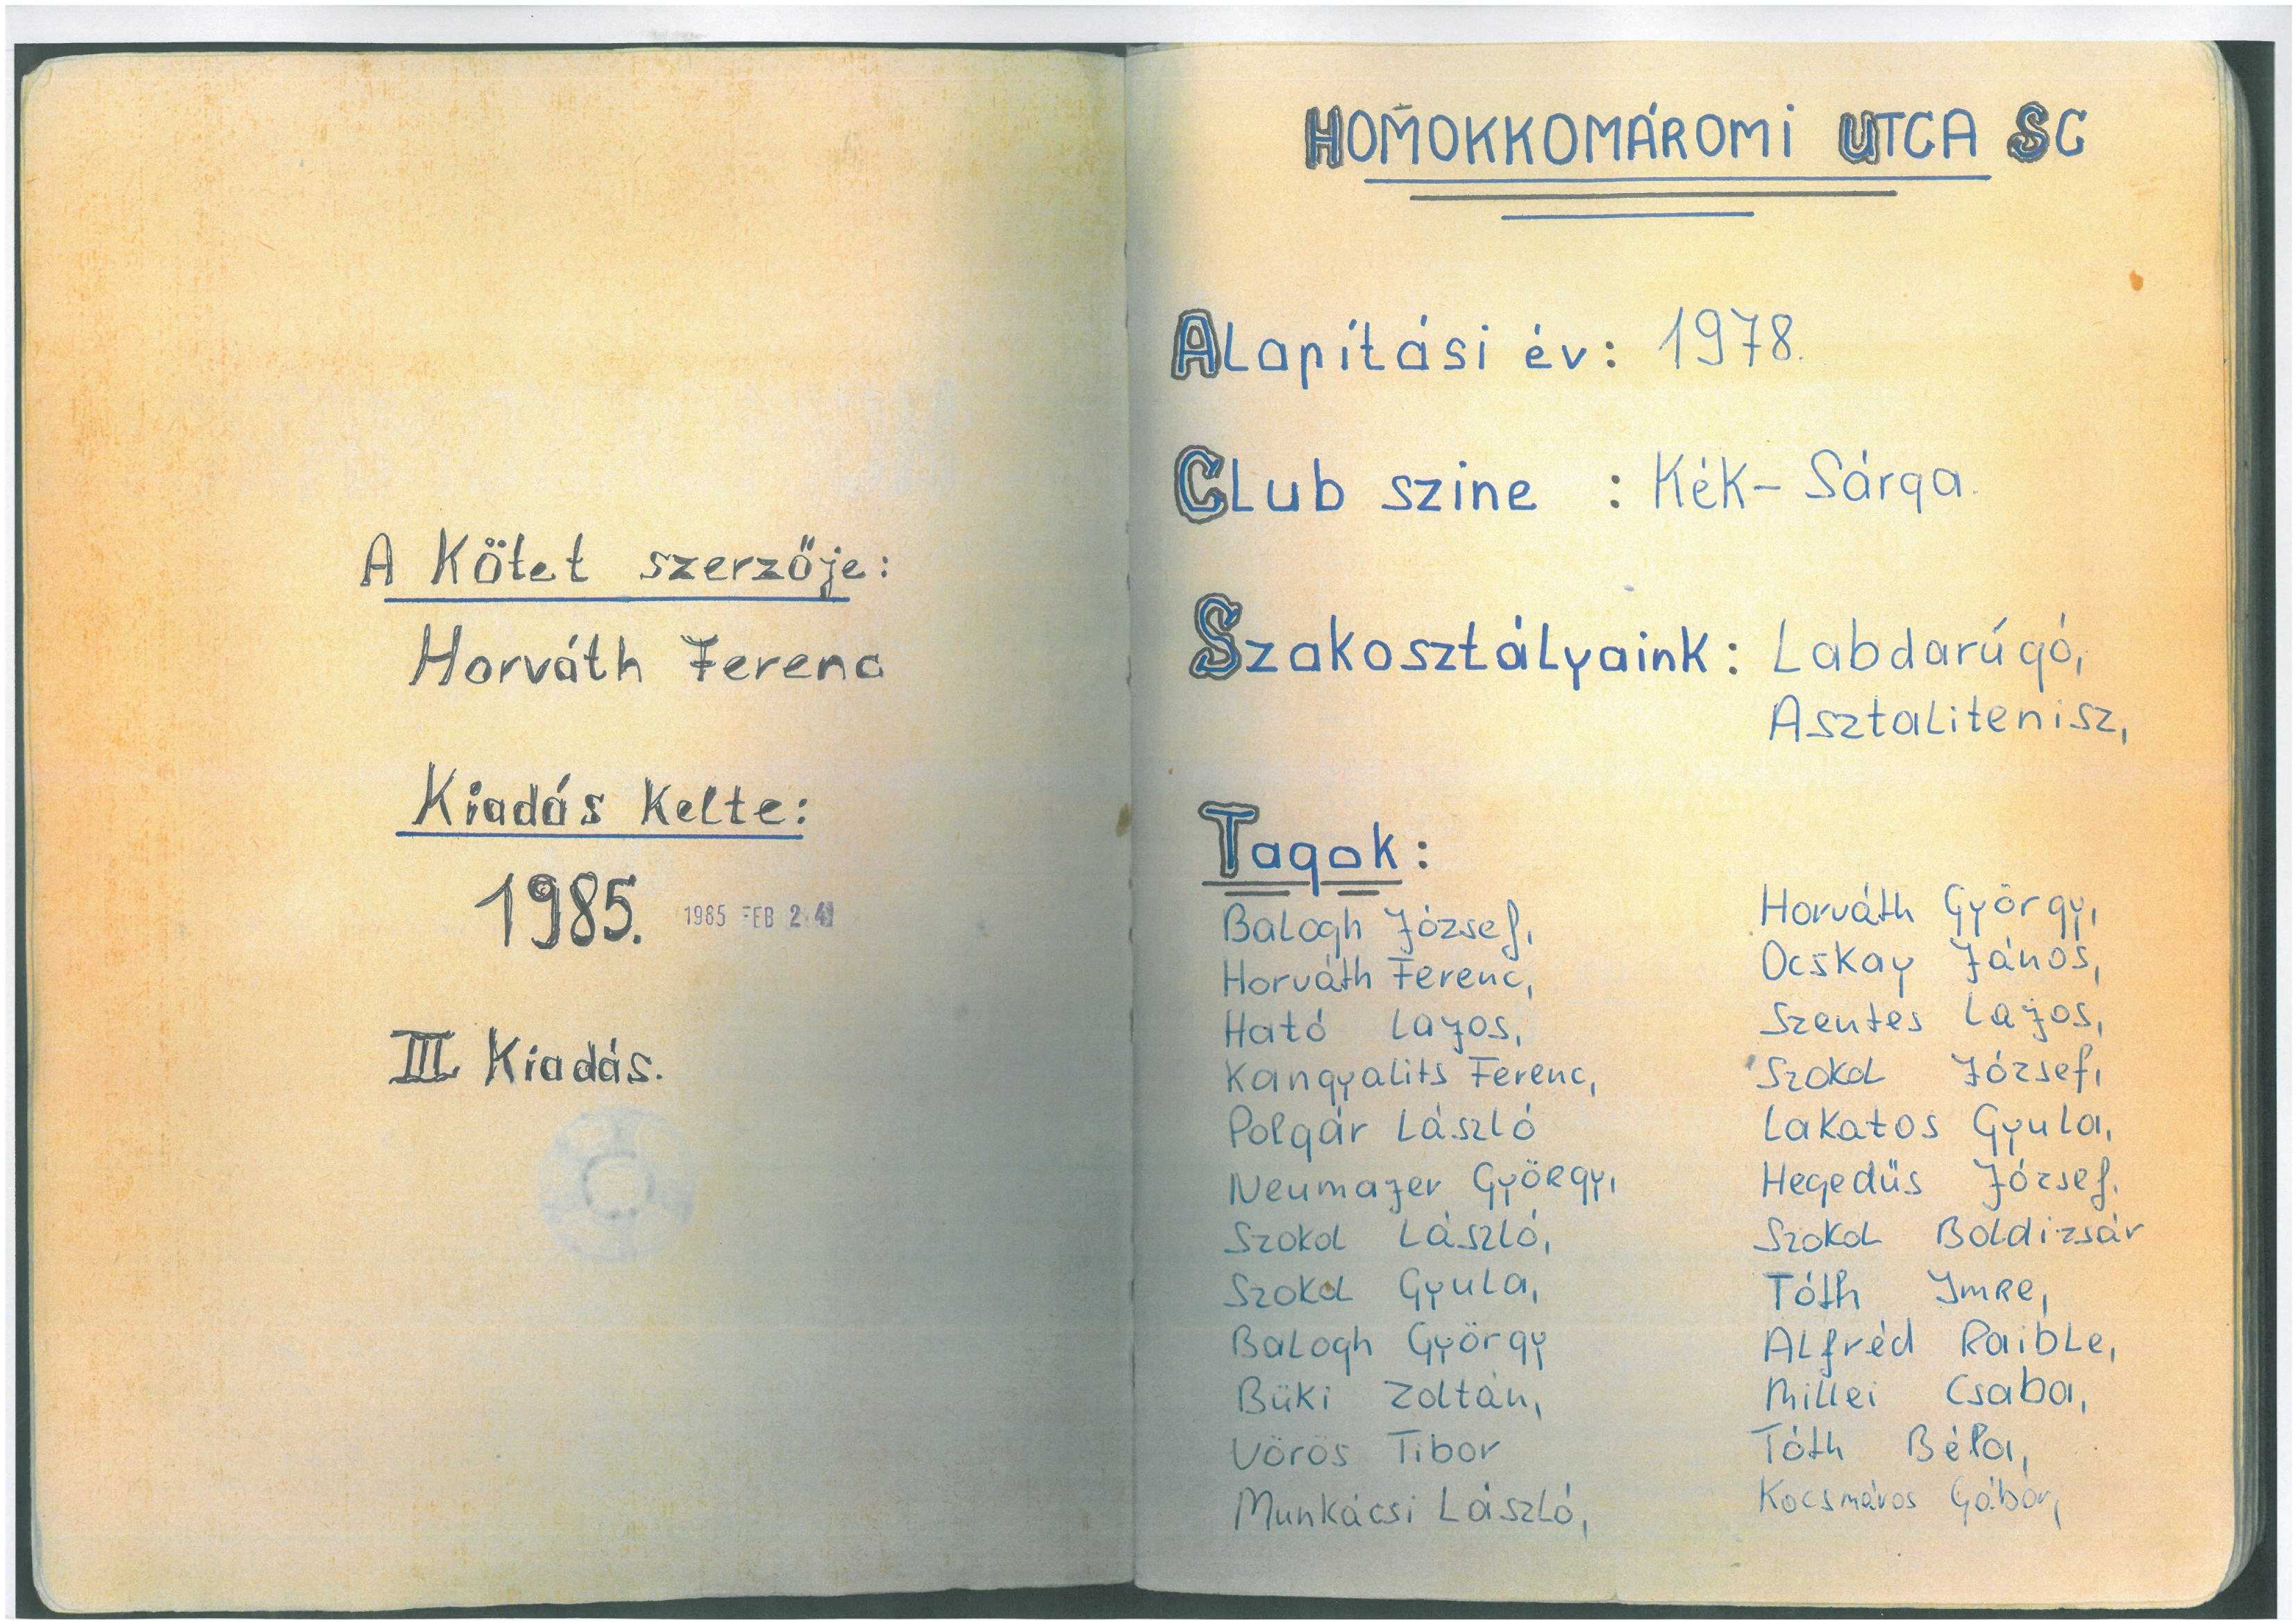 A Kötet szerzője:
Horváth Ferenc
Kiadás Kelte:
1985. 1985 FEB 24
III. Kiadás.
HOMOKKOMÁROMI UTCA SC
Alapítási év: 1978.
Club szine : Kék-Sárga.
Szakosztályaink: Labdarúgó,
Asztalitenisz,
Tagok:
Balogh József,
Horváth Ferenc,
Ható Lajos,
Kangyalits Ferenc,
Polgár László
Neumajer György,
Szokol László,
Szokol Gyula,
Balogh György
Büki Zoltán,
Vörös Tibor
Munkácsi László,
Horváth György,
Ocskay János,
Szentes Lajos,
Szokol József,
Lakatos Gyula,
Hegedüs József.
Szokol Boldizsár
Tóth Imre,
Alfréd Raible,
Millei Csaba,
Tóth Béla,
Kocsmáros Gábor,